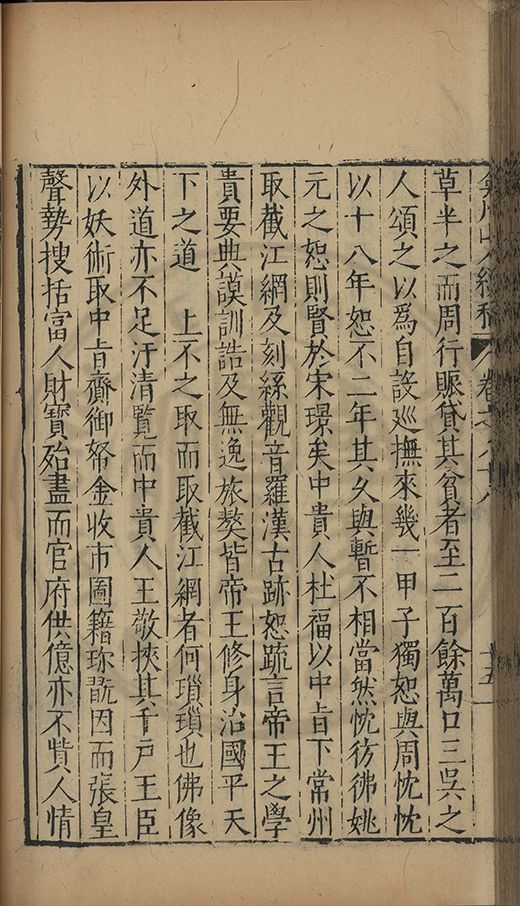 弇州山人續稿 卷之八十八 十五
草半之而周行賑貸其貧者至二百餘萬口三吳之
人頌之以為自設巡撫來幾一甲子獨恕與周忱忱
以十八年恕不二年其久與暫不相當然忱彷彿姚
元之恕則賢於宋璟矣中貴人杜福以中旨下常州
取截江網及刻絲觀音羅漢古跡恕疏言帝王之學
貴要典謨訓誥及無逸旅獒皆帝王修身治國平天
下之道 上不之取而取截江網者何瑣瑣也佛像
外道亦不足汙清覽而中貴人王敬挾其千戶王臣
以妖術取中旨齎御帑金收市圖籍珍翫因而張皇
聲勢搜括富人財寶殆盡而官府供億亦不貲人情